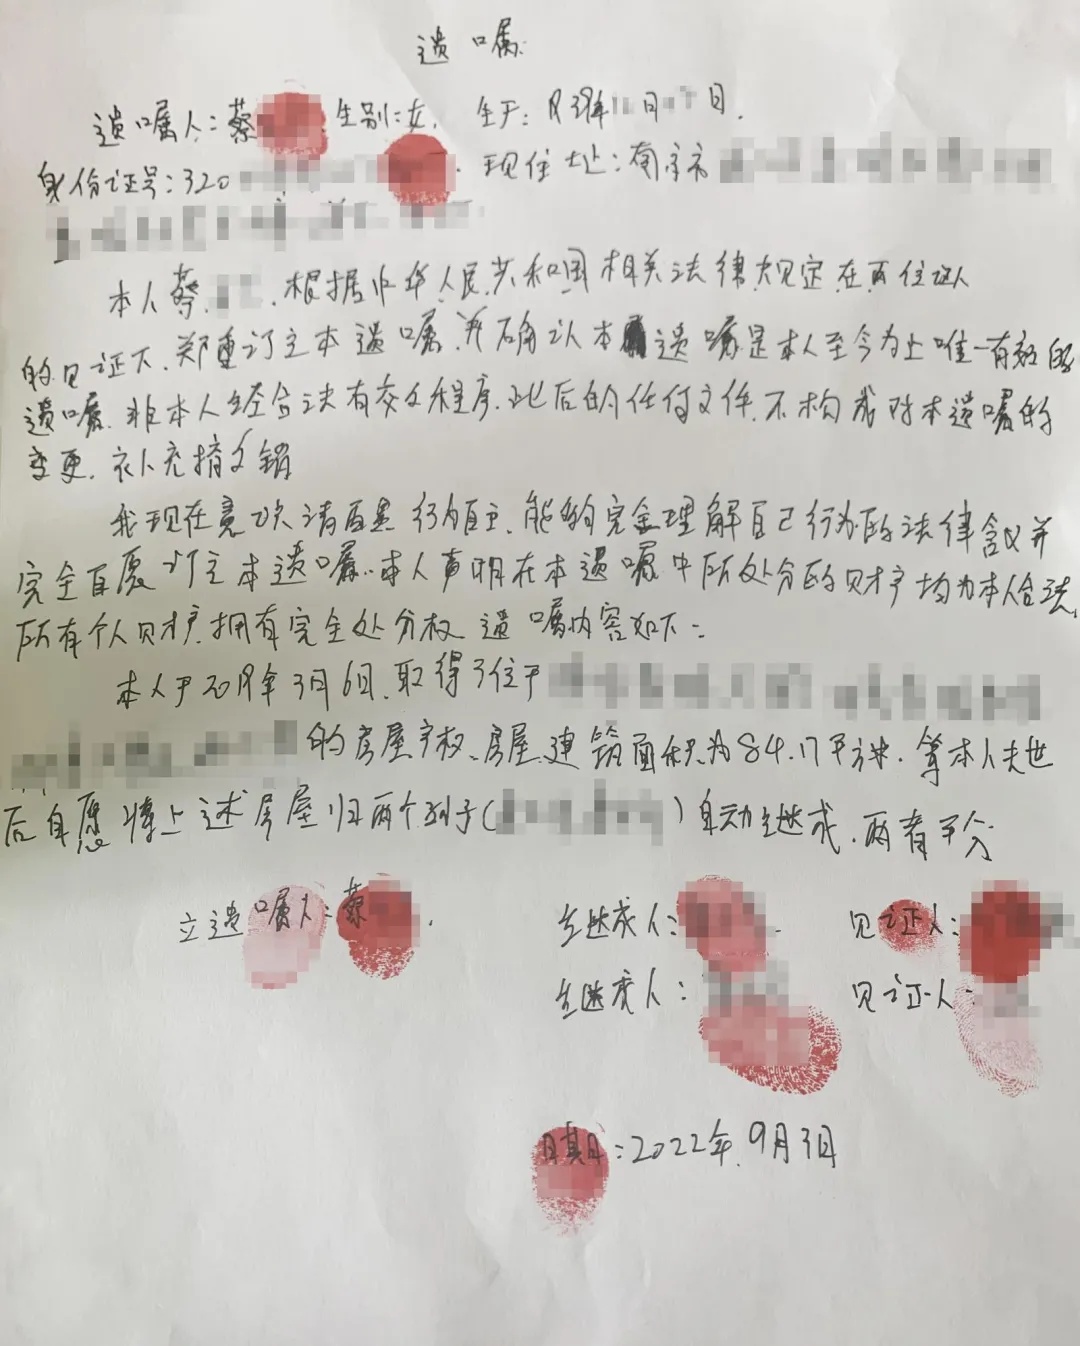 遗嘱
遗嘱人：蔡 生别：女. 生于：1938年 月 日.
身份证号：320 . 现住址：南京市
本人蔡 . 根据中华人民共和国相关法律规定在两位证人
的见证下. 郑重订立本遗嘱. 并确认本遗嘱是本人至今为止唯一有效的
遗嘱. 非本人经合法有交文程序. 此后的任何文件. 不构成对本遗嘱的
变更. 补充撤销
我现在意识清 行为自主. 能够完全理解自己行为的法律含义并
完全自愿订立本遗嘱. 本人声明在本遗嘱中所处分的财产均为本人合法
所有个人财产. 拥有完全处分权 遗嘱内容如下：
本人于 年3月6日. 取得了位于
的房屋产权、房屋建筑面积为84.17平方米. 等本人去世
后自愿将上述房屋归两个 子( )自动继承. 两者平分
立遗嘱人：蔡 . 继承人： 见证人：
继承人： 见证人：
日期：2022年.9月3日